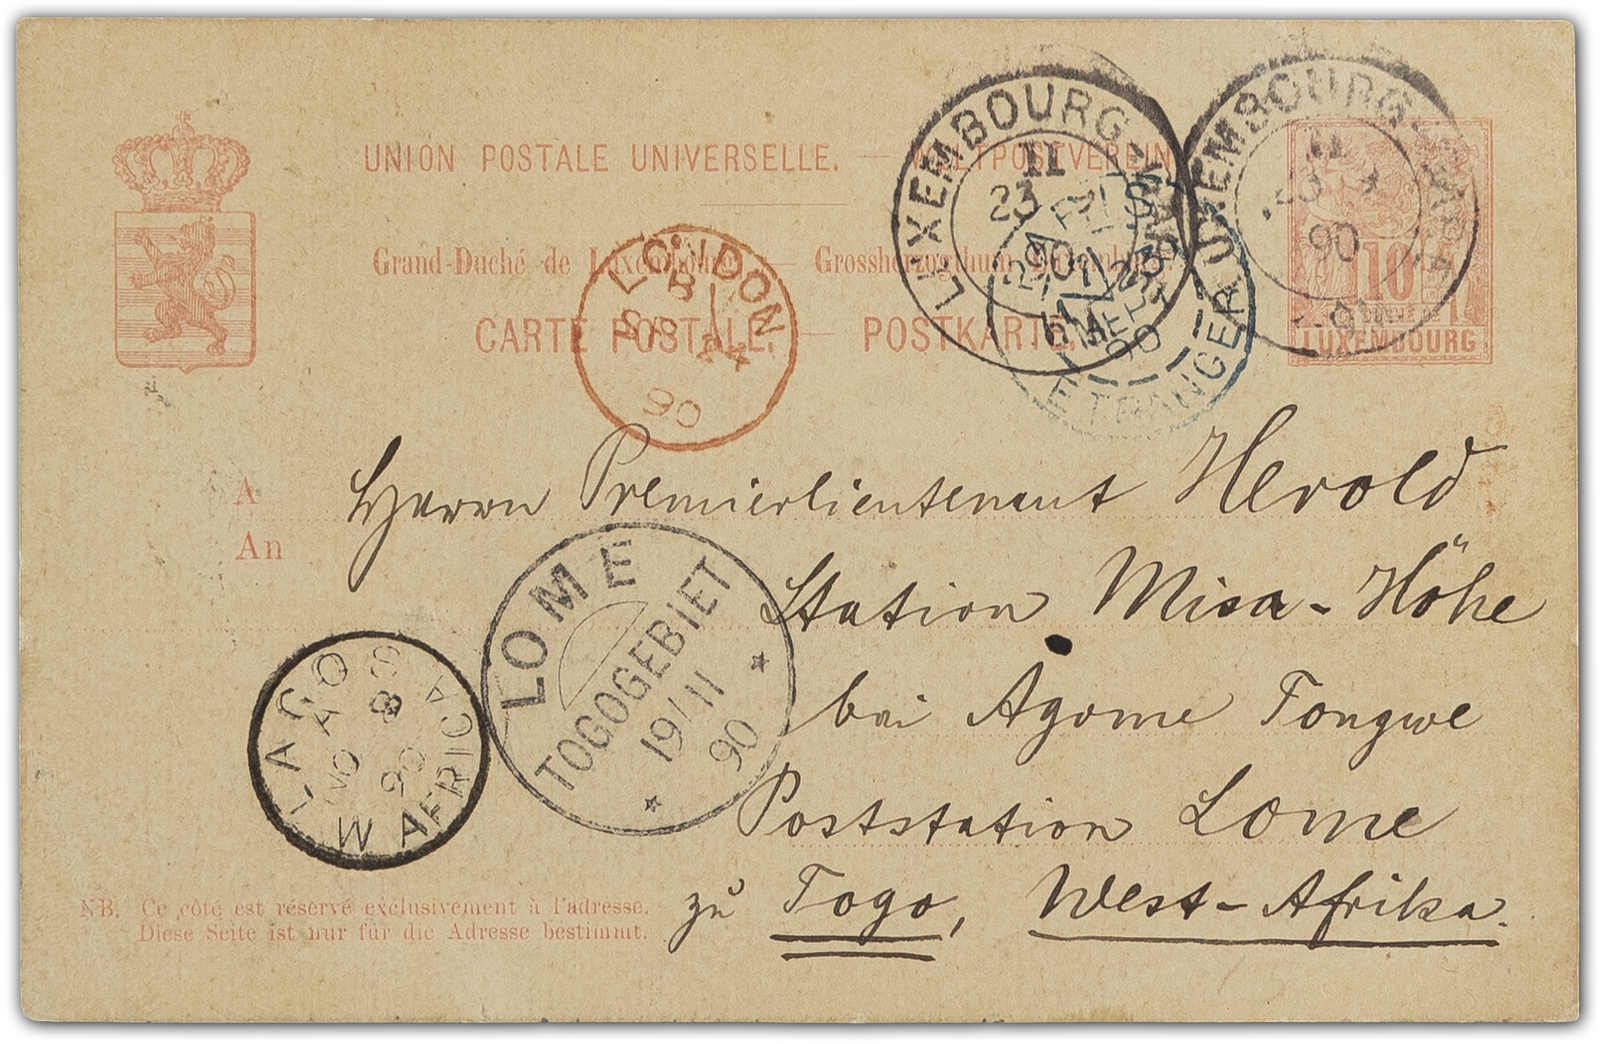 UNION POSTALE UNIVERSELLE. — WELTPOSTVEREIN
Grand-Duché de Luxembourg. — Grossherzogthum Luxemburg.
CARTE POSTALE. — POSTKARTE.
LUXEMBOURG-GARE
11
23
90
LUXEMBOURG-GARE
11
90
10
LUXEMBOURG
ETRANGER
90
LONDON
B
SP 24
90
A
An
Herrn Premierlieutenant Herold
Station Misa-Höhe
bei Agome Tongwe
Poststation Lome
zu Togo, West-Afrika.
LOME
TOGOGEBIET
19/11
90
LAGOS
A
NO 8
90
W AFRICA
NB. Ce côté est réservé exclusivement à l'adresse.
Diese Seite ist nur für die Adresse bestimmt.